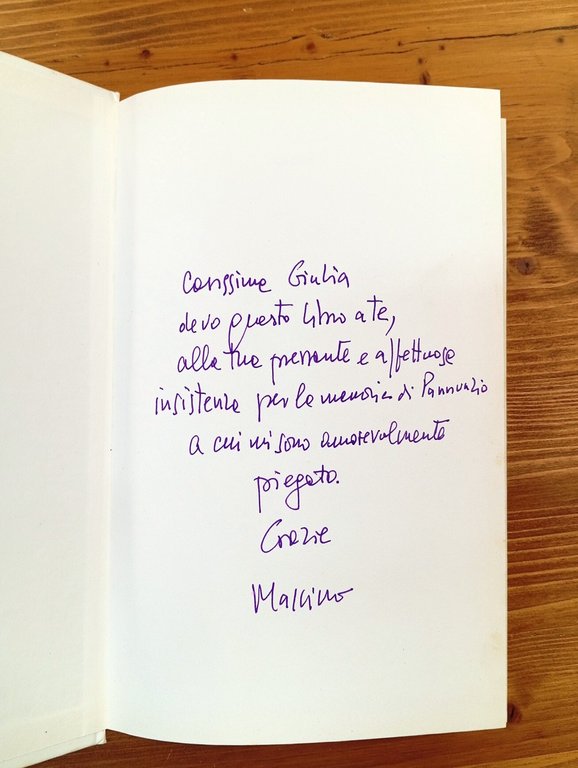 Carissima Giulia
devo questo libro a te,
alla tua pressante e affettuosa
insistenza per la memoria di Pannunzio
a cui mi sono amorevolmente
piegato.
Grazie
Massimo